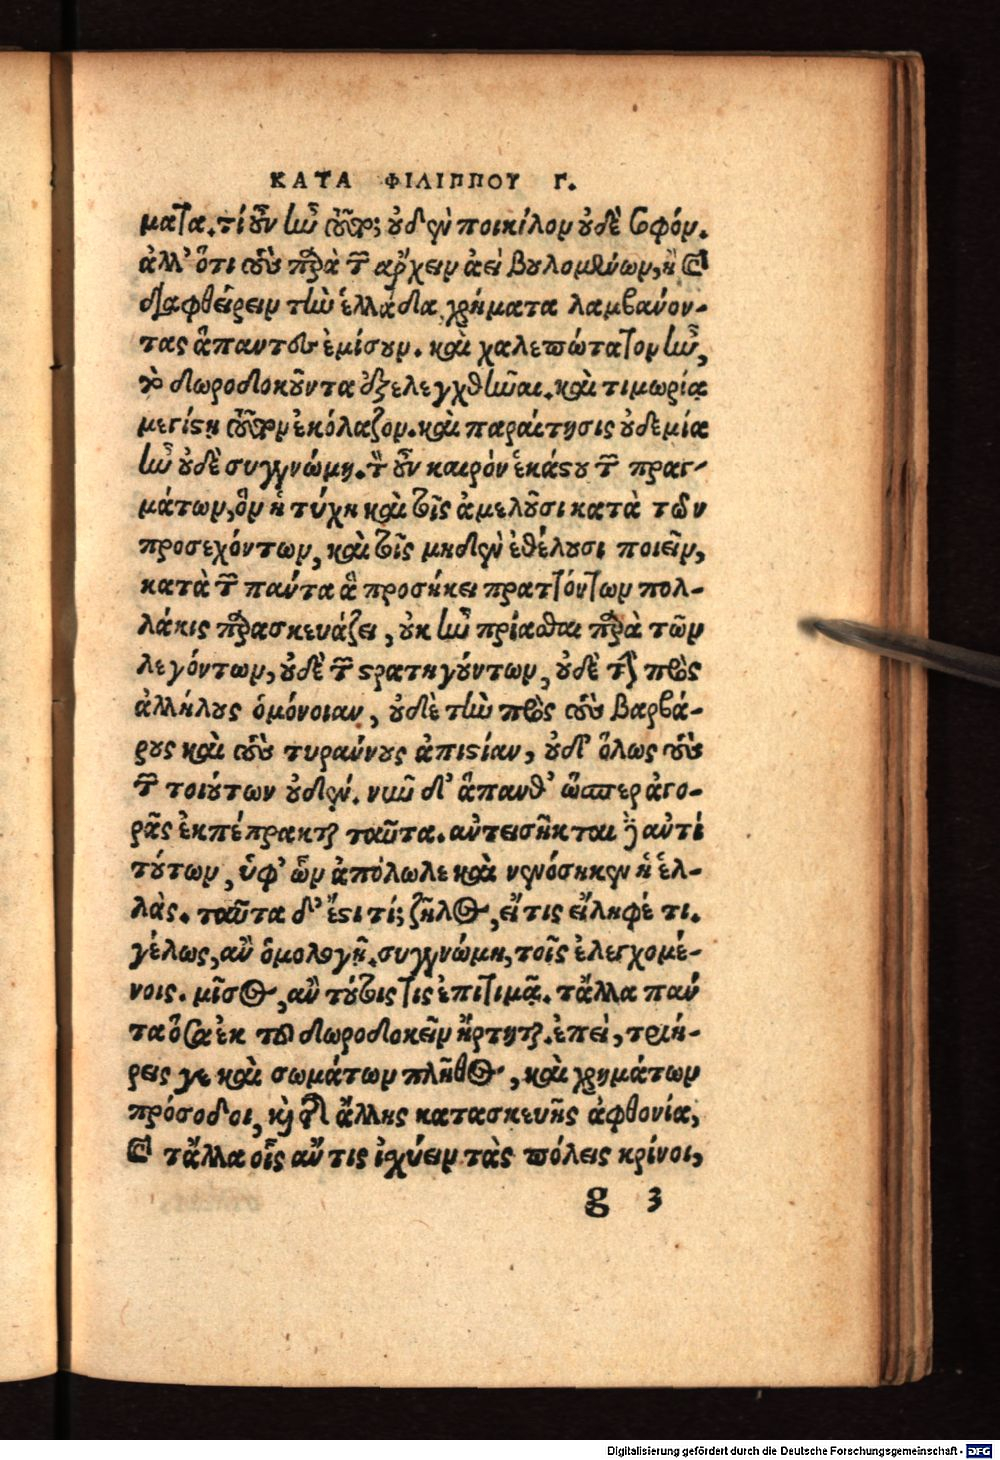 ΚΑΤΑ ΦΙΛΙΠΠΟΥ Γ.
ματα. τί οὖν ἦν τοῦτο; οὐδὲν ποικίλον οὐδὲ σοφόν.
ἀλλ' ὅτι τοὺς παρὰ τῶν ἄρχειν ἀεὶ βουλομένων, ἢ καὶ
διαφθείρειν τὴν ἑλλάδα χρήματα λαμβάνον-
τας ἅπαντες ἐμίσουν. καὶ χαλεπώτατον ἦν,
τὸ δωροδοκοῦντα ἐξελεγχθῆναι. καὶ τιμωρίᾳ
μεγίστῃ τοῦτον ἐκόλαζον. καὶ παραίτησις οὐδεμία
ἦν οὐδὲ συγγνώμη. τὸν οὖν καιρὸν ἑκάστου τῶν πραγ-
μάτων, ὃν ἡ τύχη καὶ τοῖς ἀμελοῦσι κατὰ τῶν
προσεχόντων, καὶ τοῖς μηδὲν ἐθέλουσι ποιεῖν,
κατὰ τῶν πάντα ἃ προσήκει πραττόντων πολ-
λάκις παρασκευάζει, οὐκ ἦν πρίασθαι παρὰ τῶν
λεγόντων, οὐδὲ τῶν στρατηγούντων, οὐδὲ τὴν πρὸς
ἀλλήλους ὁμόνοιαν, οὐδὲ τὴν πρὸς τοὺς βαρβά-
ρους καὶ τοὺς τυράννους ἀπιστίαν, οὐδ' ὅλως τοὺς
τῶν τοιούτων οὐδέν. νῦν δ' ἅπανθ' ὥσπερ ἀγο-
ρᾶς ἐκπέπρακται ταῦτα. αὐτεισῆκται δὲ ἀντὶ
τούτων, ὑφ' ὧν ἀπόλωλε καὶ νενόσηκεν ἡ ἑλ-
λάς. ταῦτα δ' ἔστι τί; ζῆλος, εἴ τις εἴληφέ τι.
γέλως, ἂν ὁμολογῇ. συγγνώμη, τοῖς ἐλεγχομέ-
νοις. μῖσος, ἂν τούτοις τις ἐπιτιμᾷ. τἄλλα πάν
τα ὅσα ἐκ τοῦ δωροδοκεῖν ἤρτηται. ἐπεὶ, τριή-
ρεις γε καὶ σωμάτων πλῆθος, καὶ χρημάτων
πρόσοδοι, καὶ τῆς ἄλλης κατασκευῆς ἀφθονία,
καὶ τἄλλα οἷς ἄν τις ἰσχύειν τὰς πόλεις κρίνοι,
g 3
Digitalisierung gefördert durch die Deutsche Forschungsgemeinschaft - DFG